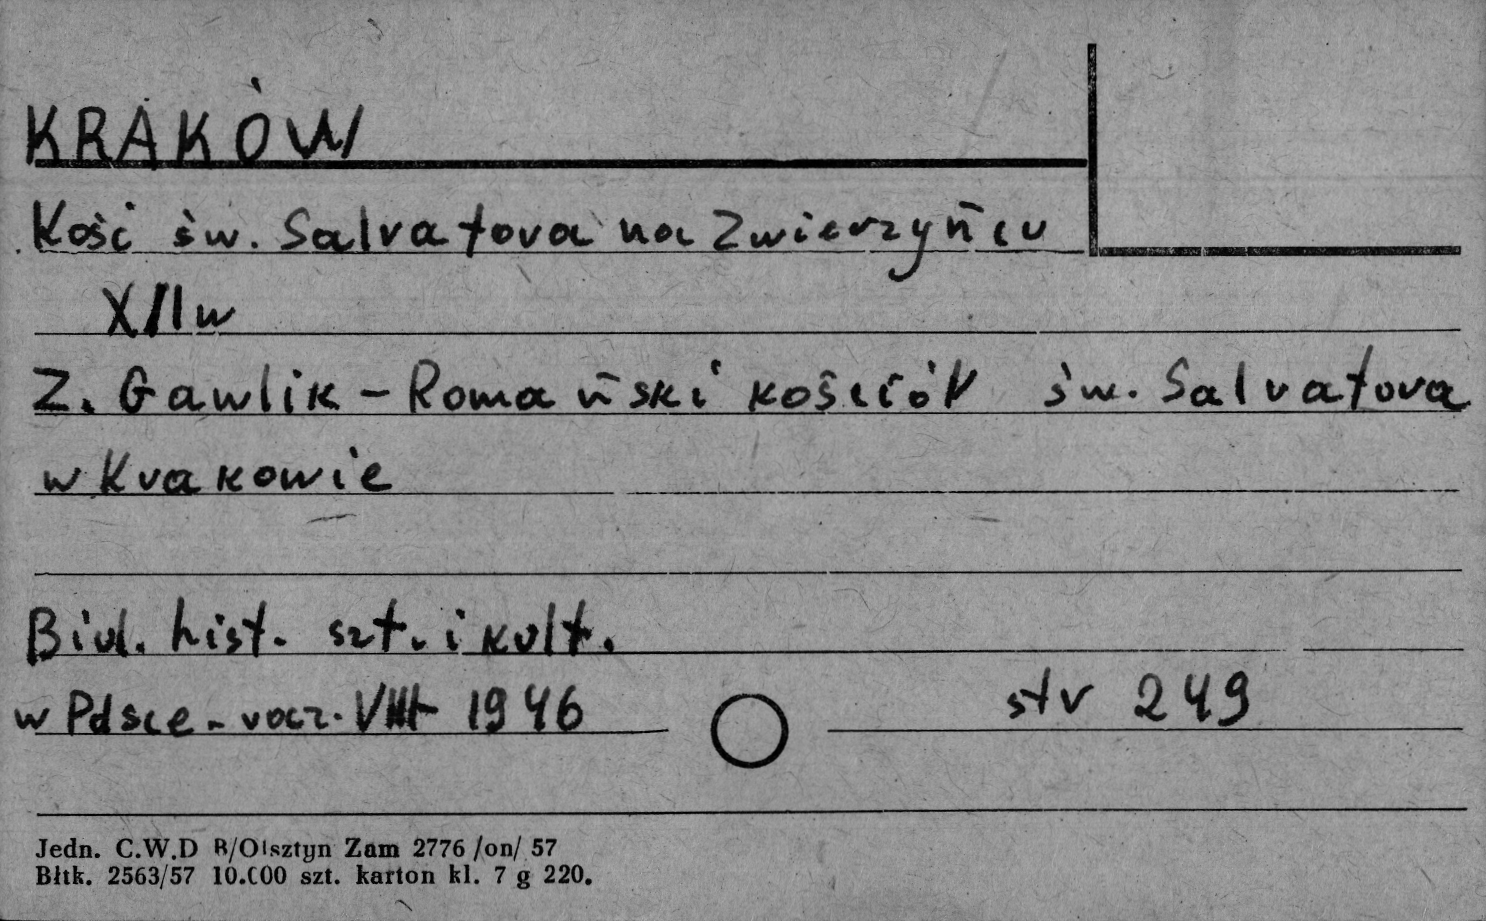 KRAKÓW
Kość św. Salvatora na Zwierzyńcu
XIIw
Z. Gawlik - Romański kościół św. Salvatora
w Krakowie
Biul. hist. szt. i kult.
w Polsce - rocz. VIII 1946 str 249
Jedn. C.W.D B/Olsztyn Zam 2776 /on/ 57
Błtk. 2563/57 10.000 szt. karton kl. 7 g 220.